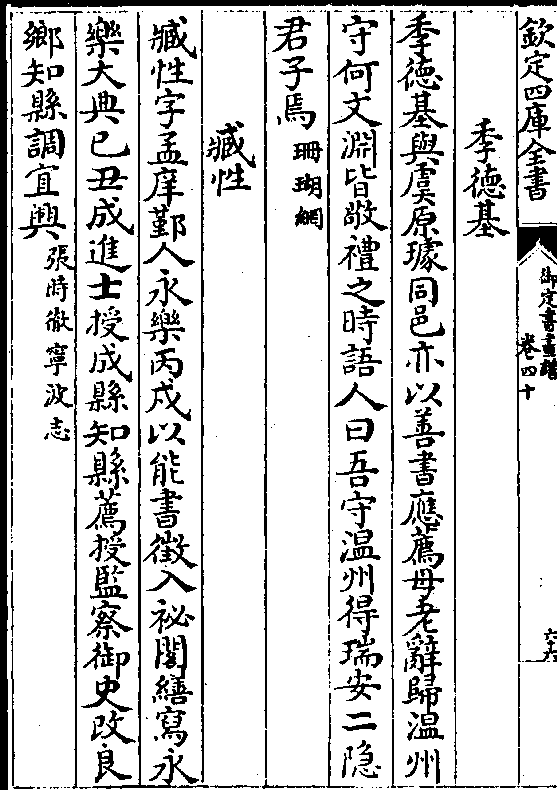 欽定四庫全書
御定書畫譜
卷四十
六六
季德基
季德基與虞原璩同邑亦以善書應薦母老辭歸温州
守何文淵皆敬禮之時語人曰吾守温州得瑞安二隐
君子焉珊瑚網
臧性
臧性字孟庠鄞人永樂丙戍以能書徵入祕閣繕寫永
樂大典已丑成進士授成縣知縣薦授監察御史改良
鄉知縣調宜興張時徹寧波志